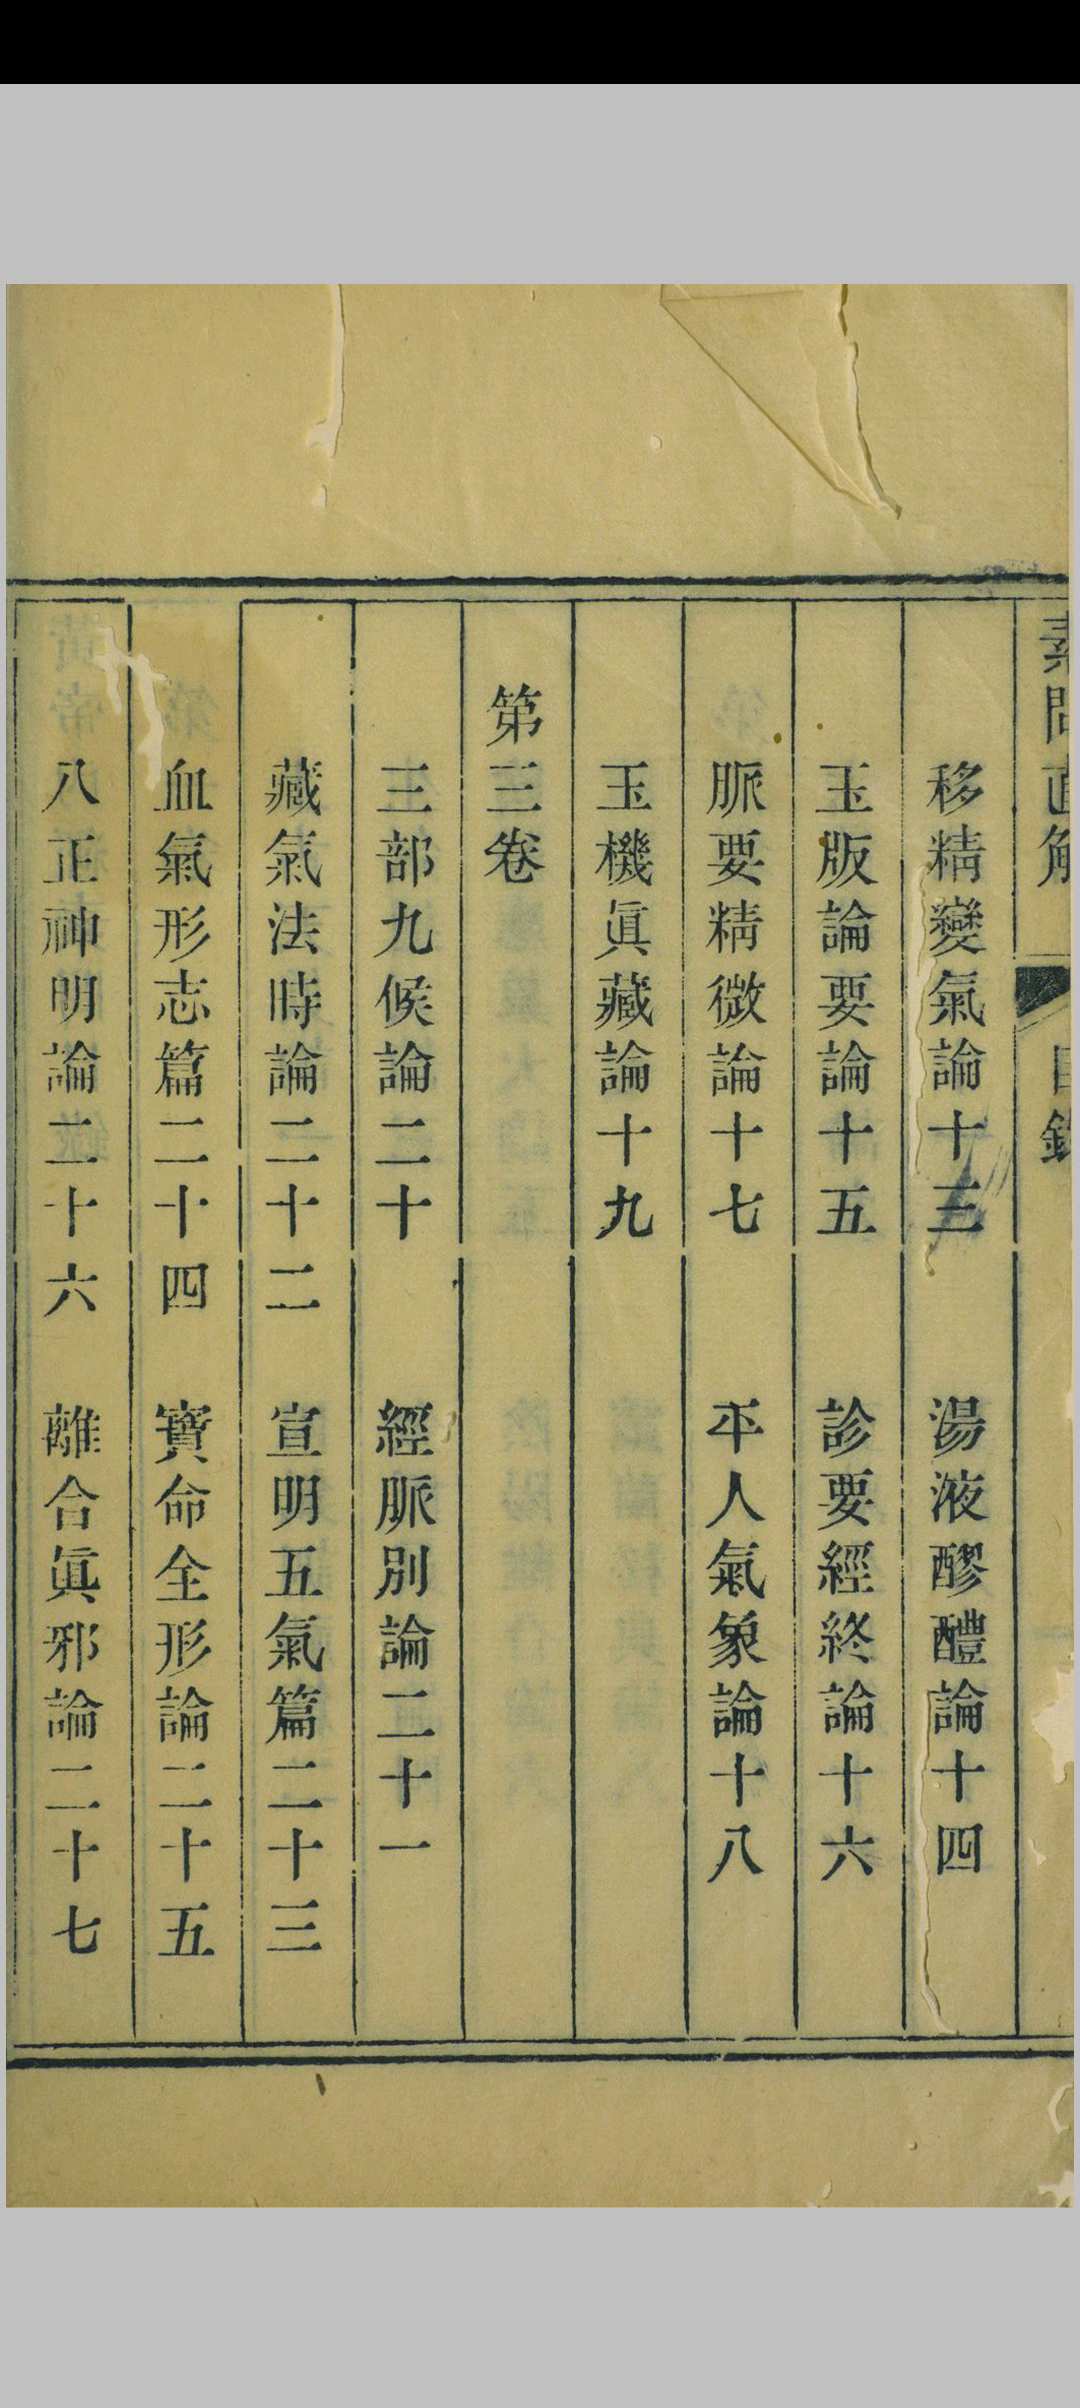 素問直解
目錄
移精變氣論十三　湯液醪醴論十四
玉版論要論十五　診要經終論十六
脈要精微論十七　平人氣象論十八
玉機眞藏論十九
第三卷
三部九候論二十　經脈別論二十一
藏氣法時論二十二　宣明五氣篇二十三
血氣形志篇二十四　寶命全形論二十五
八正神明論二十六　離合眞邪論二十七